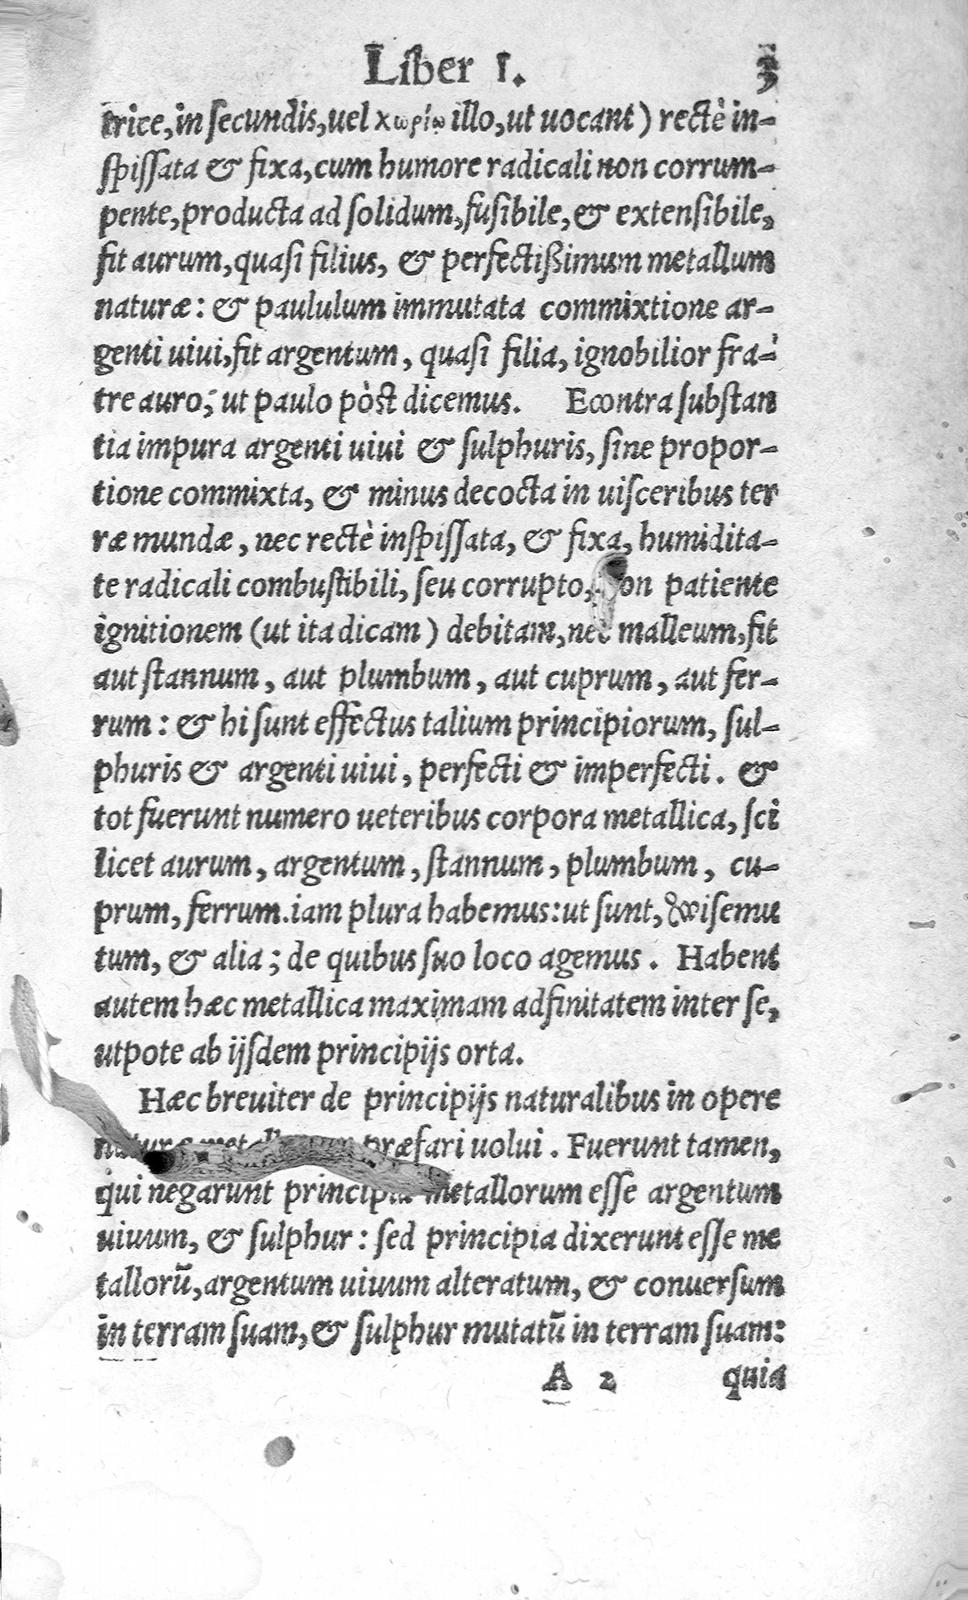 Liber I. 3
trice, in secundis, uel χωρίῳ illo, ut uocant) rectè in-
spissata & fixa, cum humore radicali non corrum-
pente, producta ad solidum, fusibile, & extensibile,
fit aurum, quasi filius, & perfectißimum metallum
naturæ: & paululum immutata commixtione ar-
genti uiui, fit argentum, quasi filia, ignobilior fra-
tre auro, ut paulo pòst dicemus. Econtra substan
tia impura argenti uiui & sulphuris, sine propor-
tione commixta, & minus decocta in uisceribus ter
ræ mundæ, nec rectè inspissata, & fixa, humidita-
te radicali combustibili, seu corrupto, non patiente
ignitionem (ut ita dicam) debitam, nec malleum, fit
aut stannum, aut plumbum, aut cuprum, aut fer-
rum: & hi sunt effectus talium principiorum, sul-
phuris & argenti uiui, perfecti & imperfecti. &
tot fuerunt numero ueteribus corpora metallica, sci
licet aurum, argentum, stannum, plumbum, cu-
prum, ferrum. iam plura habemus: ut sunt, Wisemu
tum, & alia; de quibus suo loco agemus. Habent
autem hæc metallica maximam adfinitatem inter se,
utpote ab ijsdem principijs orta.
Hæc breuiter de principijs naturalibus in opere
naturæ metallorum præfari uolui. Fuerunt tamen,
qui negarunt principia metallorum esse argentum
uiuum, & sulphur: sed principia dixerunt esse me
tallorũ, argentum uiuum alteratum, & conuersum
in terram suam, & sulphur mutatũ in terram suam:
A 2 quia